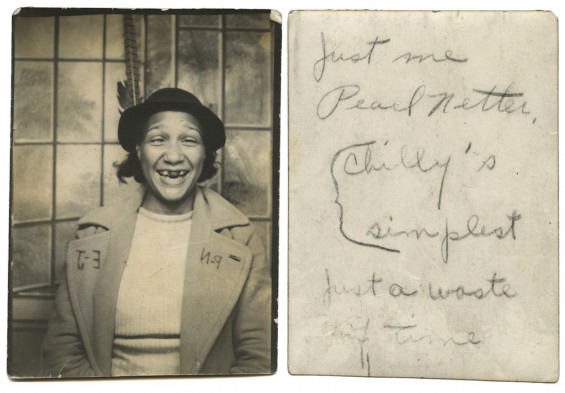 Just me
Pearl Netter,
Chilly's
simplest
Just a waste
of time
"